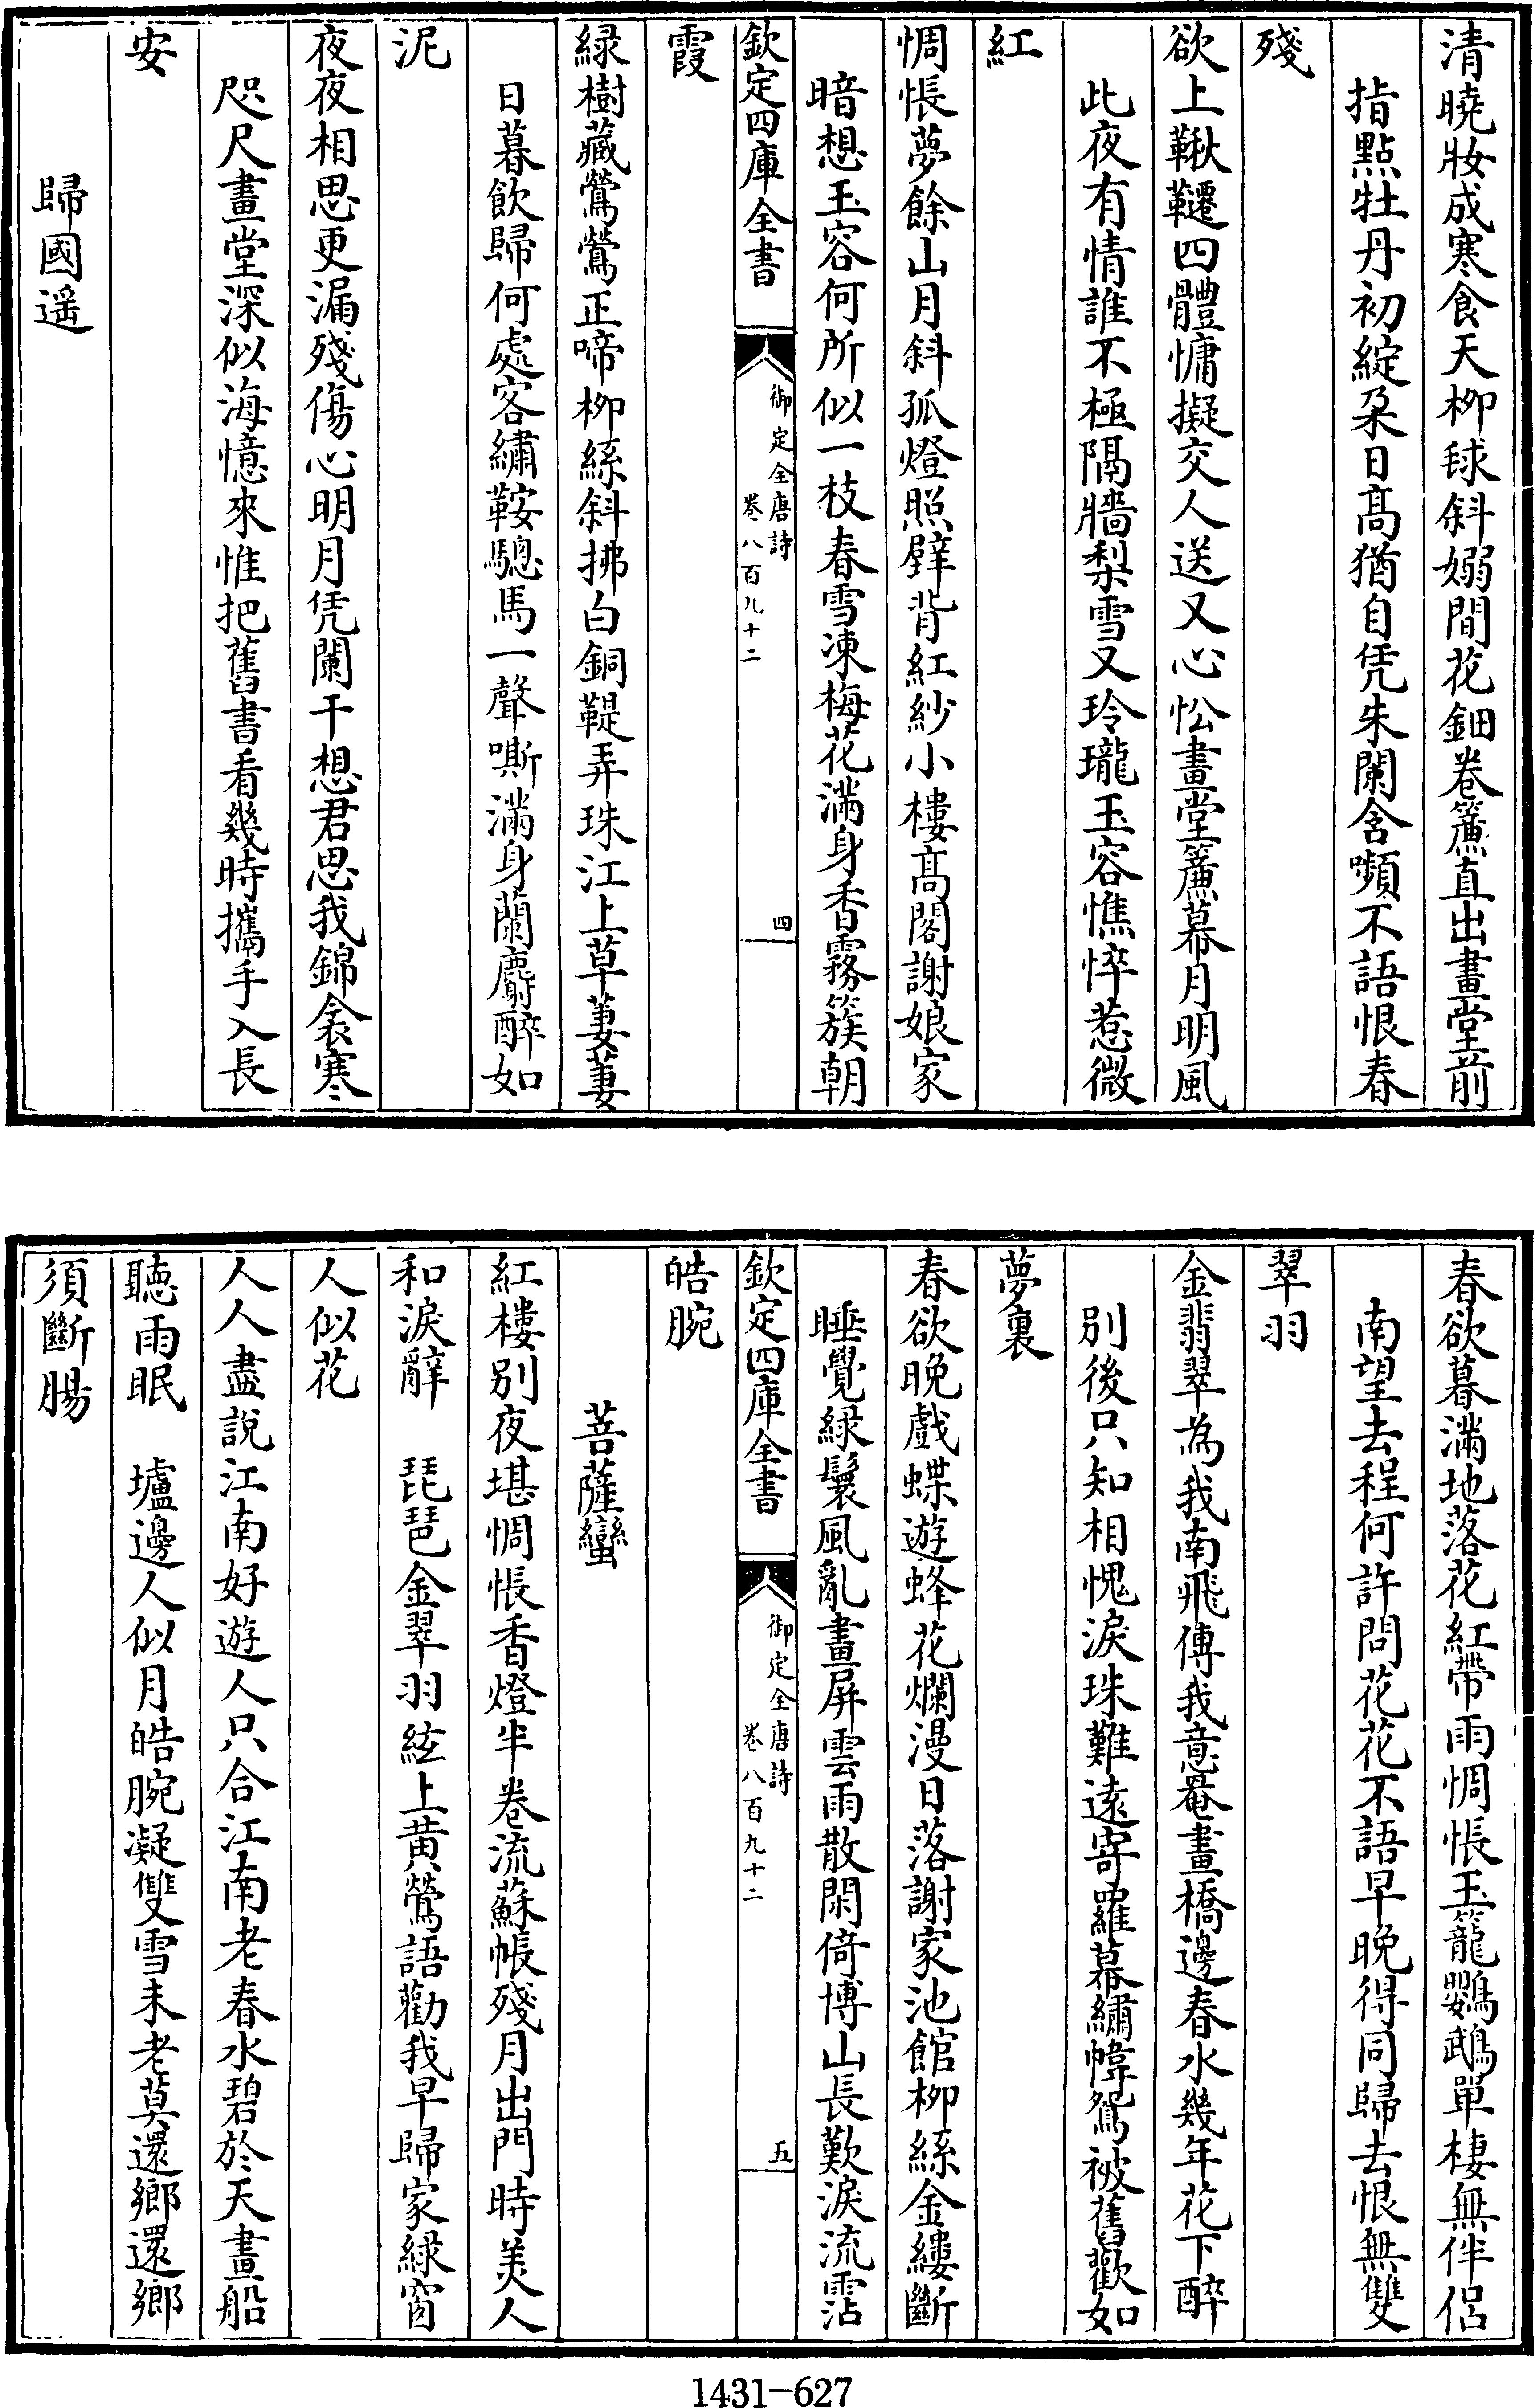 清曉妝成寒食天柳毬斜嫋間花鈿卷簾直出畫堂前
指點牡丹初綻朶日髙猶自凭朱闌含嚬不語恨春
殘
欲上鞦韆四體慵擬交人送又心忪畫堂簾幕月明風
此夜有情誰不極隔牆梨雪又玲瓏玉容憔悴惹微
紅
惆悵夢餘山月斜孤燈照壁背紅紗小樓髙閣謝娘家
暗想玉容何所似一枝春雪凍梅花滿身香霧簇朝
欽定四庫全書
御定全唐詩
卷八百九十二
四
霞
緑樹藏鶯鶯正啼栁絲斜拂白銅鞮弄珠江上草萋萋
日暮飲歸何處客繡鞍驄馬一聲嘶滿身蘭麝醉如
泥
夜夜相思更漏殘傷心明月凭闌干想君思我錦衾寒
咫尺畫堂深似海憶來惟把舊書看幾時攜手入長
安
歸國遥
春欲暮滿地落花紅帶雨惆悵玉籠鸚鵡單棲無伴侣
南望去程何許問花花不語早晚得同歸去恨無雙
翠羽
金翡翠為我南飛傳我意罨畫橋邊春水幾年花下醉
別後只知相愧淚珠難遠寄羅幕繡幃鴛被舊歡如
夢裏
春欲晚戲蝶遊蜂花爛漫日落謝家池館栁絲金縷斷
睡覺緑鬟風亂畫屏雲雨散閑倚博山長歎淚流霑
欽定四庫全書
御定全唐詩
卷八百九十二
五
皓腕
菩薩蠻
紅樓別夜堪惆悵香燈半卷流蘇帳殘月出門時美人
和淚辭　琵琶金翠羽絃上黄鶯語勸我早歸家緑窗
人似花
人人盡說江南好遊人只合江南老春水碧於天畫船
聽雨眠　壚邊人似月皓腕凝雙雪未老莫還鄉還鄉
須斷腸
1431-627